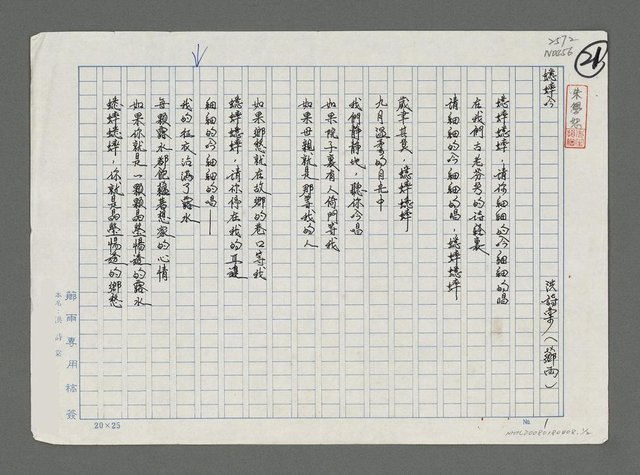 2572
N0256
21
蟋蟀吟
洪詩棠(薌雨)
蟋蟀蟋蟀,請你細細的吟細細的唱
在我們古老芬芳的詩經裏
請細細的吟細細的唱,蟋蟀蟋蟀
歲聿其莫,蟋蟀蟋蟀
九月溫柔的月光中
我們靜靜地,聽你吟唱
如果院子裏有人倚門等我
如果母親就是那等我的人
如果鄉愁就在故鄉的巷口等我
蟋蟀蟋蟀,請你停在我的耳邊
細細的吟細細的唱——
我的征衣沾滿了露水
每顆露水都飽蘊著想家的心情
如果你就是一顆顆晶瑩惕透的露水
蟋蟀蟋蟀,你就是晶瑩惕透的鄉愁
薌雨專用稿箋
本名:洪詩棠
20×25
No.
1